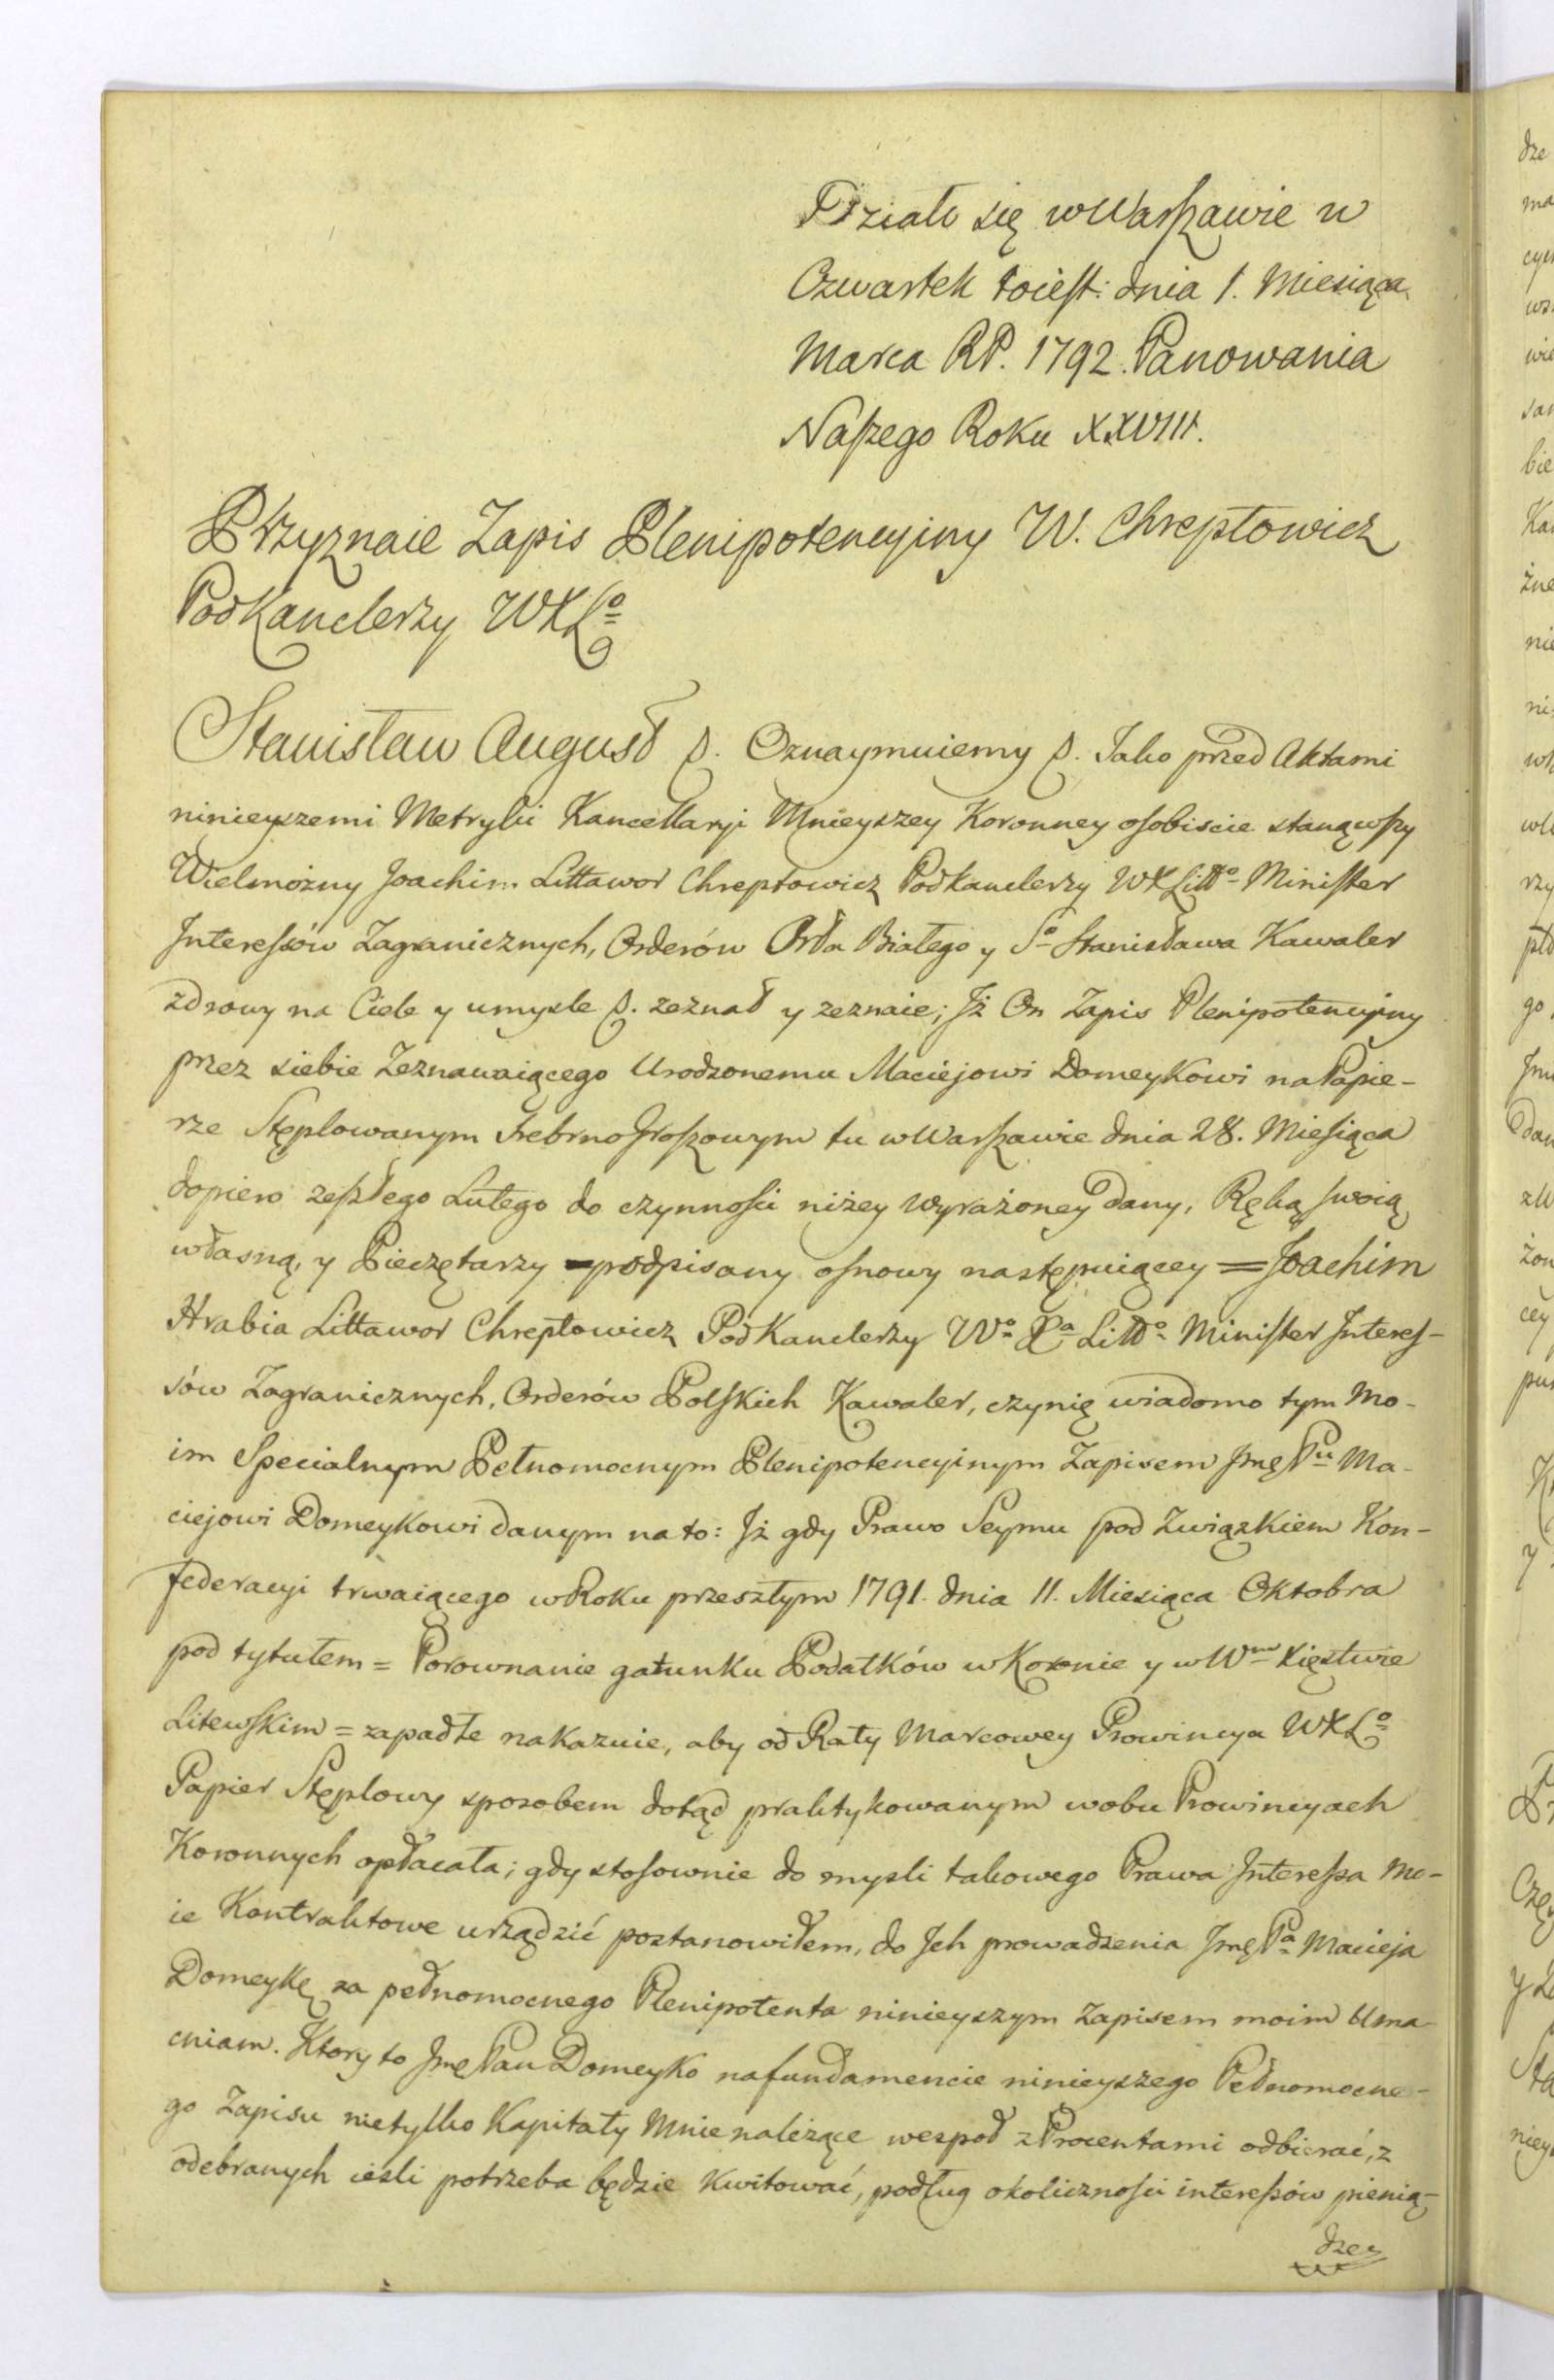 Działo się w Warszawie w
Czwartek toiest: dnia 1. Miesiąca
Marca RP. 1792. Panowania
Naszego Roku XXVIII.
Przyznaie Zapis Plenipotencyiny W. Chreptowicz
PodKanclerzy WXLº
Stanisław August p. Oznaymuiemy p. Jako przed Aktami
ninieyszemi Metryki Kancellaryi Mnieyszey Koronney osobiscie stanąwszy
Wielmożny Joachim Littawor Chreptowicz Podkanclerzy WXLittº Minister
Interessów Zagranicznych, Orderów Orła Białego y Sº Stanisława Kawaler
zdrowy na Ciele y umysle p. zeznał y zeznaie; Jż On Zapis Plenipotencyiny
przez siebie Zeznawaiącego Urodzonemu Maciejowi Domeykowi na Papie-
rze Stęplowanym srebrno Groszowym tu w Warszawie dnia 28. Miesiąca
dopiero zeszłego Lutego do czynnosci niżey wyrażoney dany, Ręką swoią
własną, y Pieczętarzy podpisany osnowy następuiącey = Joachim
Hrabia Littawor Chreptowicz PodKanclerzy Wº Xª Littº Minister Interes-
sów Zagranicznych, Orderów Polskich Kawaler, czynię wiadomo tym Mo-
im Specialnym Pełnomocnym Plenipotencyinym Zapisem Jmę Pu Ma-
ciejowi Domeykowi danym na to: Jż gdy Prawo Seymu pod Związkiem Kon-
federacyi trwaiącego w Roku przeszłym 1791. dnia 11. Miesiąca Oktobra
pod tytułem = Porownanie gatunku Podatków w Koronie y w Wm Xięstwie
Litewskim = zapadłe nakazuie, aby od Raty Marcowey Prowincya WXLº
Papier Stęplowy sposobem dotąd praktykowanym w obu Prowincyach
Koronnych opłacała; gdy stosownie do mysli takowego Prawa Interessa mo-
ie Kontraktowe urządzić postanowiłem, do Jch prowadzenia Jmę Pª Macieja
Domeykę za pełnomocnego Plenipotenta ninieyszym Zapisem moim Uma-
cniam. Ktory to Jmę Pan Domeyko na fundamencie ninieyszego Pełnomocne-
go Zapisu nietylko Kapitały Mnie należące wespoł z Procentami odbierać, z
odebranych iesli potrzeba będzie Kwitować, podług okolicznosci interessów pienią-
dzey